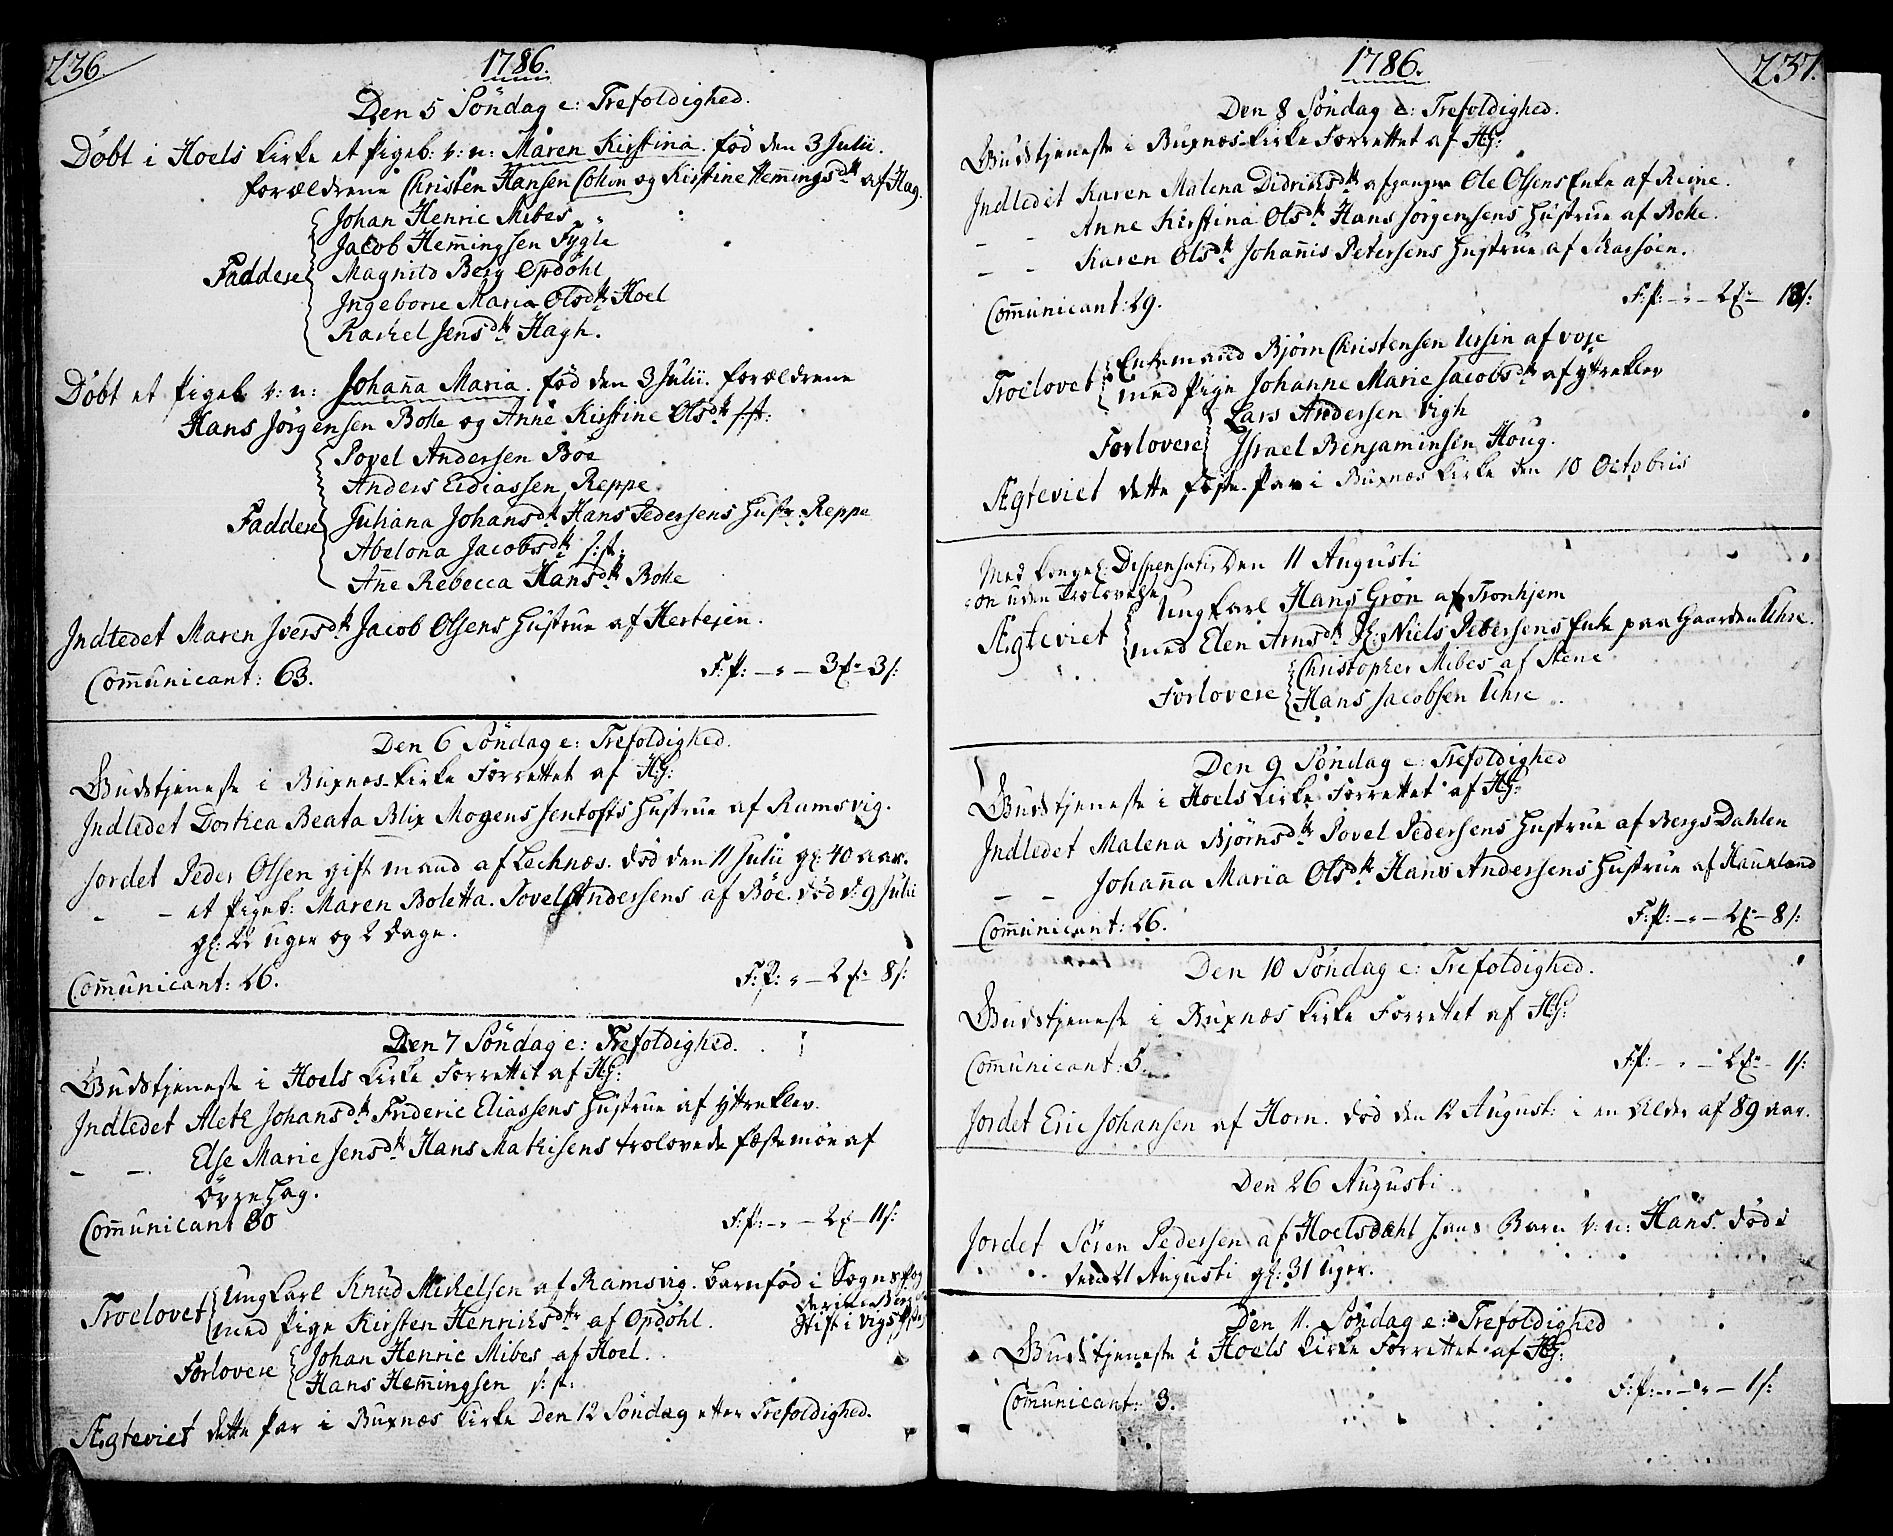 236.
1786.
Den 5 Söndag e: Trefoldighed.
Döbt i Hoels Kirke et Pigeb: v: n: Maren Kirstina. föd den 3 Julii.
forældrene Christen Hansen Cohin og Kirstine Hem̄ingsdtr af Hag.
Johan Henric Mibes
Jacob Hem̄ingsen Fygle
Faddere Magnild Berg Opdöhl
Ingeborre Maria Olsdtr Hoel
Rachel Jensdtr Hagh.
Döbt et Pigeb v: n: Johan̄a Maria. föd den 3 Julii. forældrene
Hans Jörgensen Bolle og Anne Kirstine Olsdtr s:st:
Povel Andersen Böe
Anders Eidiassen Reppe
Faddere Juliana Johansdtr Hans Pedersens Hustr: Reppe
Abelona Jacobsdtr s:st:
An̄e Rebecca Hansdtr Bolle
Indledet Maren Iversdtr Jacob Olsens Hustrue af Hertejen.
Com̄unicant: 63.
F: P: – " – 3 – 3 s:
Den 6 Söndag e: Trefoldighed.
Gudstjeneste i Buxnæs-Kirke Forrettet af HG:
Indledet Dorthea Beata Blix Mogens Jentofts Hustrue af Ramsvig.
Jordet Peder Olsen gift mand af Lechnæs. död den 11 Julii gl: 40 aar.
– – et Pigeb: Maren Boletta. Povel Andersens af Böe. död d: 9 Julii
gl: 22 uger og 2 dage.
Com̄unicant: 26.
F: P: " – 2 – 8 s:
Den 7 Söndag e: Trefoldighed.
Gudstjeneste i Hoels Kirke Forrettet af HG:
Indledet Aleth Johansdtr Frideric Eliassens Hustrue af Yttreklev.
– – Else Marie Jensdtr Hans Mathisens trolovede Fæstemöe af
Övre Hag.
Com̄unicant 80
F: P: – " – 2 – 11 s:
Troelovet Ungkarl Knud Michelsen af Ramsvig. barnföd i Sogns fog
derie Berg
med Pige Kirsten Henrichsdtr af Opdöhl. Stift i Vigs
Forlovere Johan Henric Mibes af Hoel.
Hans Hem̄ingsen s: st:
Ægteviet dette Par i Buxnæs Kirke Den 12 Söndag etter Trefoldighed.
1786.
237.
Den 8 Söndag e: Trefoldighed.
Gudstjeneste i Buxnæs-Kirke Forrettet af HG:
Indledet Karen Malena Didrichsdtr afgangne Ole Olsens Enke af Reine.
Anne Kirstina Olsdtr Hans Jörgensens Hustrue af Bolle.
– – Karen Olsdtr Johan̄is Petersens Hustrue af Skarsöen.
Com̄unicant: 29.
F: P: – " – 2 – 13 s:
Troelovet Enkemand Björn Christensen Ursin af Voje
med Pige Johanne Marie Jacobsdtr af Yttreklev
Forlovere Lars Andersen Vigh
Israel Benjaminsen Houg.
Ægteviet dette Par i Buxnæs Kirke den 10 Octobris
Med Kongel: Dispensati-
on uden Trolovelse
Den 11 Augusti
Ægteviet Ungkarl Hans Grön af Tronhjem
med Elen Arnsdtr Niels Petersens Enke paa Gaarden Uhre.
Forlovere Christopher Mibes af Stene
Hans Jacobsen Uhre
Den 9 Söndag e: Trefoldighed
Gudstjeneste i Hoels Kirke Forrettet af HG:
Indledet Malena Björnsdtr Povel Pedersens Hustrue af Bergs Dahlen
– – Johan̄a Maria Olsdtr Hans Andersens Hustrue af Haukland
Com̄unicant: 26.
F: P: – " – 2 – 8 s:
Den 10 Söndag e: Trefoldighed.
Gudstjeneste i Buxnæs Kirke Forrettet af HG:
Com̄unicant: 5.
F: P: – " – 2 – 1 s:
Jordet Eric Johansen af Horn. död den 12 August: i en Alder af 89 aar.
Den 26 Augusti
Jordet Sören Pedersen af Hoelsdahl Hans Barn v: n: Hans. död d
den 21 Augusti gl: 31 Uger.
Den 11. Söndag e: Trefoldighed
Gudstjeneste i Hoels Kirke Forrettet af HG:
Com̄unicant: 3.
F: P: – " – " – 1 s: